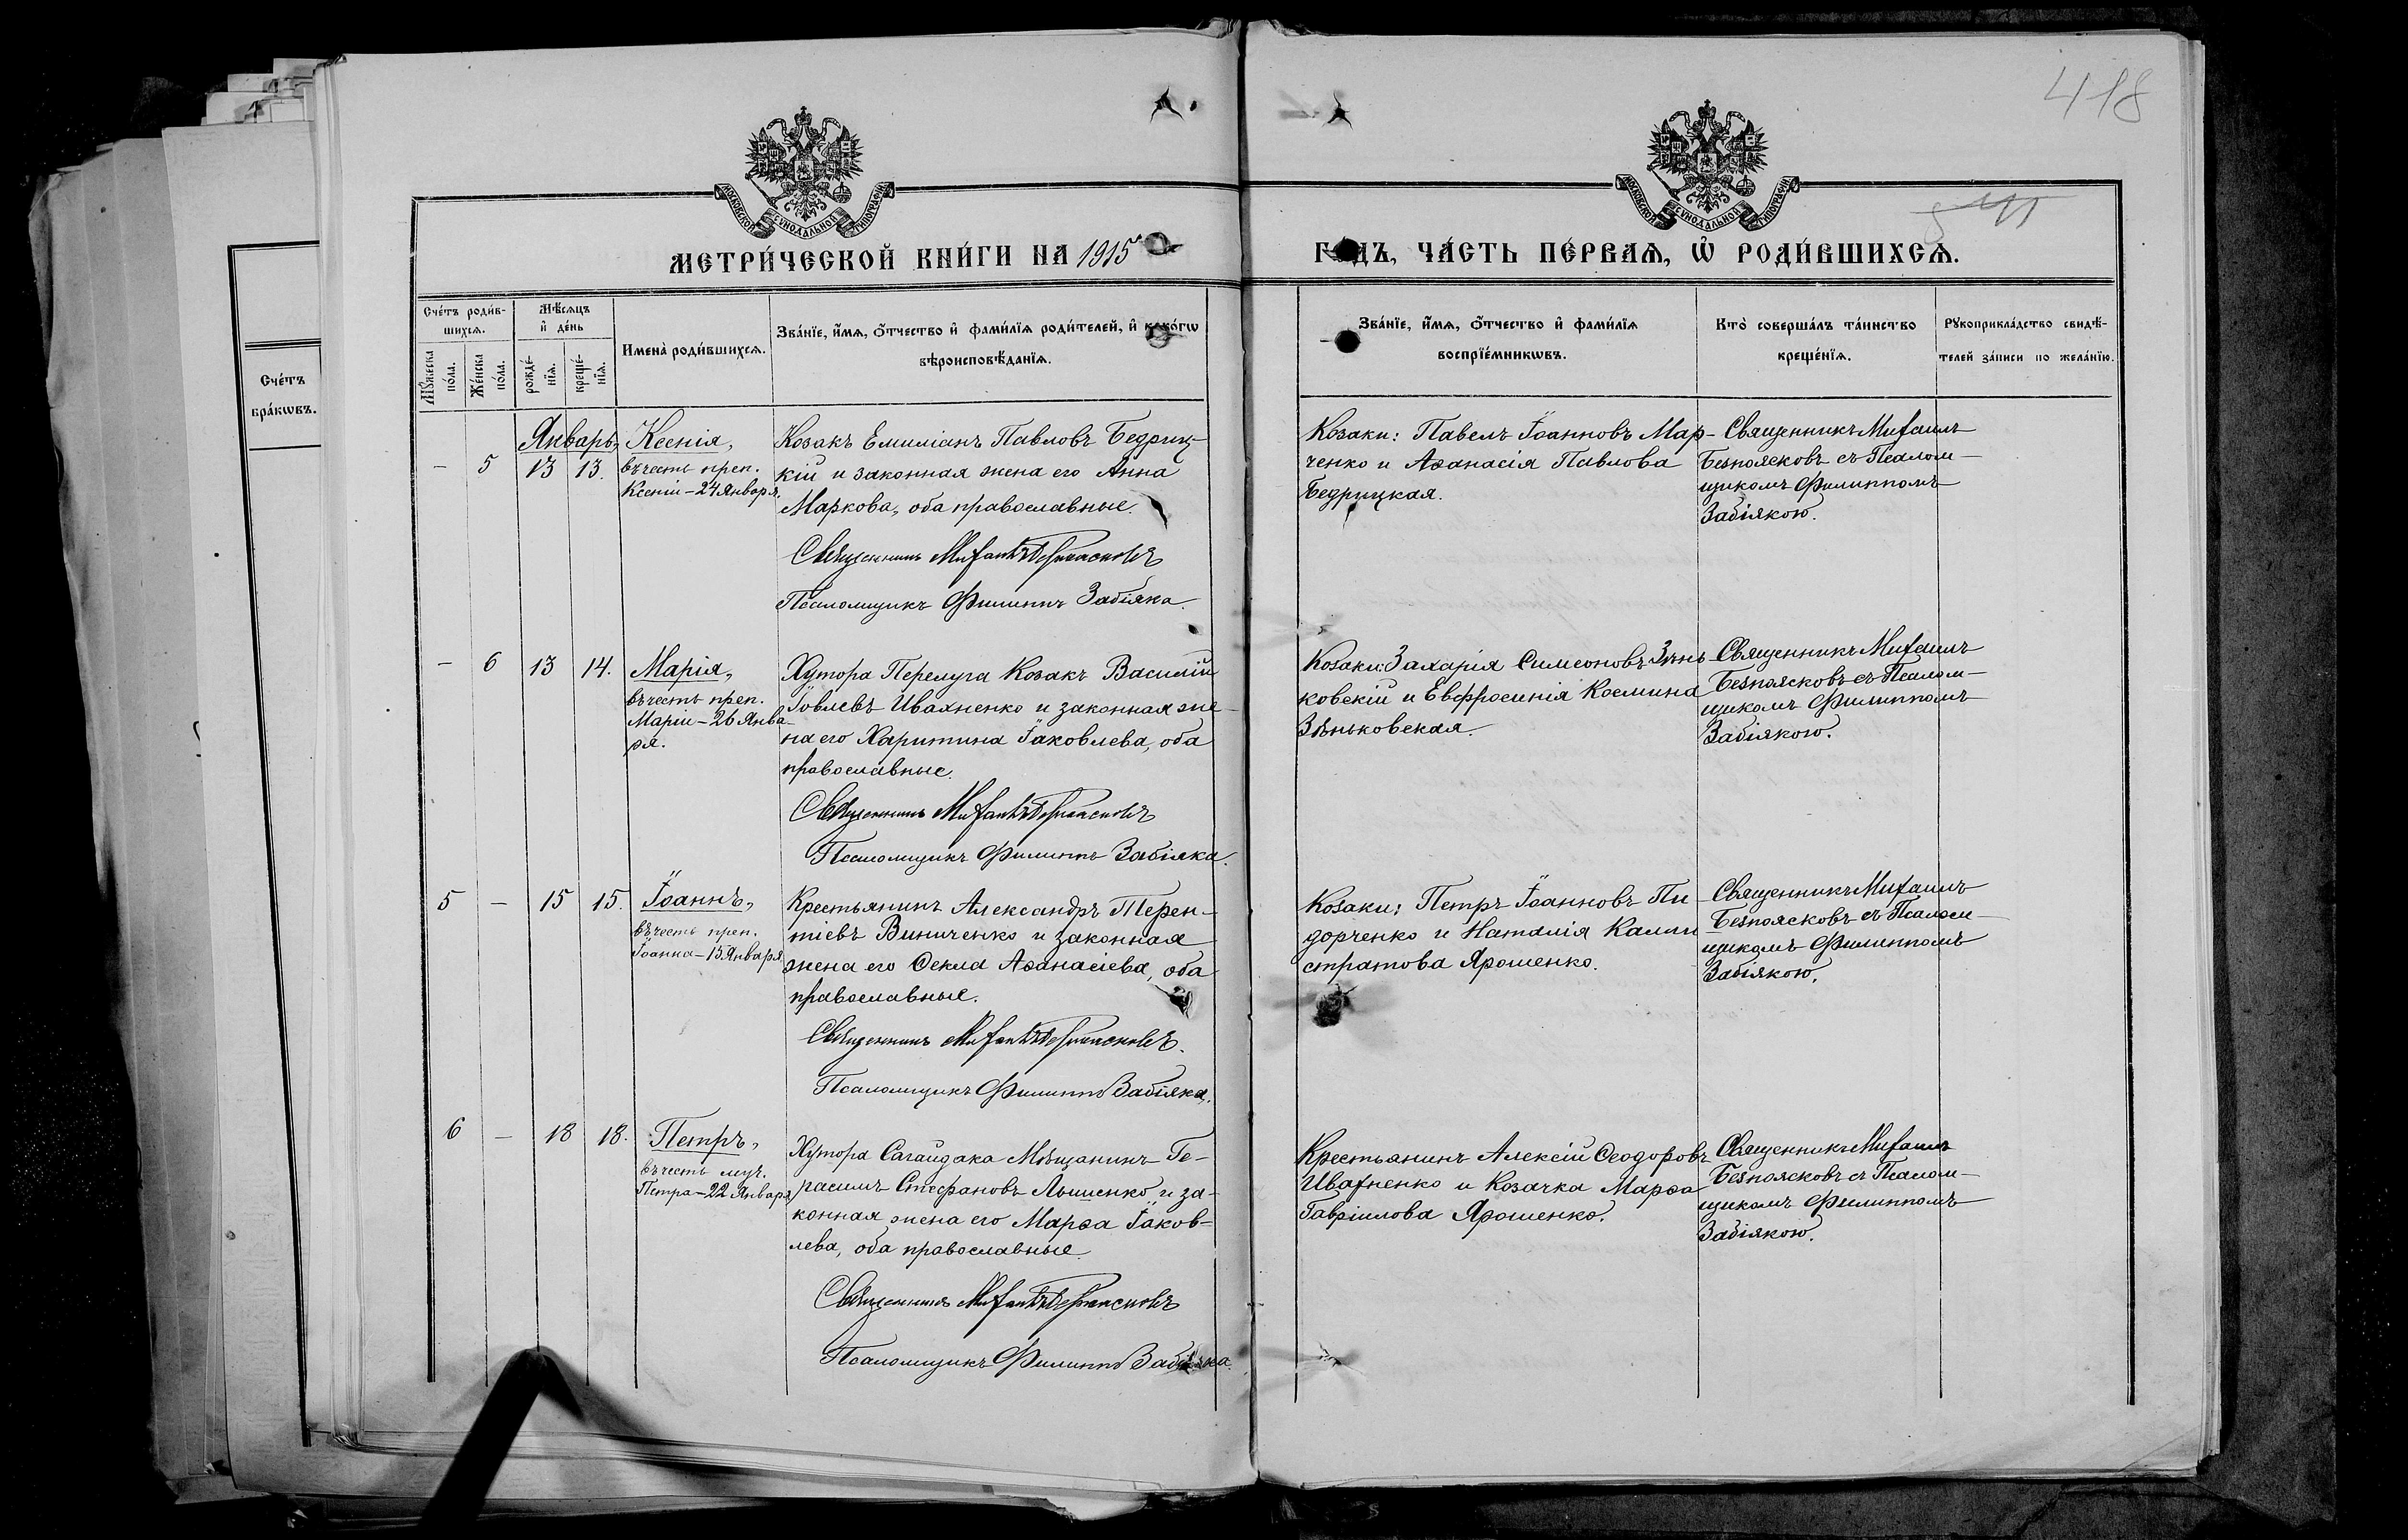 418
МОСКОВСКОЙ СѴНОДАЛЬНОЙ ТИПОГРАФІИ
МОСКОВСКОЙ СѴНОДАЛЬНОЙ ТИПОГРАФІИ
МЕТРИ́ЧЕСКОЙ КНИ́ГИ НА 1915
ГОДЪ, ЧА́СТЬ ПЕ́РВАѦ, Ѡ҆ РОДИ́ВШИХСѦ.
Сче́тъ бра́кѡвъ.
Сче́тъ роди́вшихсѧ.
Мꙋ́жеска по́ла.
Же́нска по́ла.
Мѣ́сѧцъ и҆ де́нь
рожде́нїѧ.
креще́нїѧ.
Имена̀ роди́вшихсѧ.
Зва́нїе, и҆́мѧ, ѻ҆́тчество и҆ фами́лїѧ роди́телей, и҆ како́гѡ
вѣроисповѣ́данїѧ.
Зва́нїе, и҆́мѧ, ѻ҆́тчество и҆ фами́лїѧ
воспрїе́мникѡвъ.
Кто̀ соверша́лъ та́инство
креще́нїѧ.
Рꙋкоприкла́дство свидѣ́-
телей за́писи по жела́нїю.
Январь
– 5 13 13.
Ксенія,
въ честь преп.
Ксеніи – 24 Января.
Козакъ Емиліанъ Павловъ Бедриц-
кій и законная жена его Анна
Маркова, оба православные.
Священникъ Михаилъ Безпоясковъ
Псаломщикъ Филиппъ Забіяка.
Козаки: Павелъ Іоанновъ Мар-
ченко и Аѳанасія Павлова
Бедрицкая.
Священникъ Михаилъ
Безпоясковъ съ Псалом-
щикомъ Филиппомъ
Забіякою.
– 6 13 14.
Марія,
въ честь преп.
Маріи – 26 Янва-
ря.
Хутора Перелуга Козакъ Василій
Іовлевъ Ивахненко и законная же-
на его Харитина Іаковлева, оба
православные.
Священникъ Михаилъ Безпоясковъ
Псаломщикъ Филиппъ Забіяка.
Козаки: Захарія Симеоновъ Зѣнь-
ковскій и Евфросинія Космина
Зѣньковская.
Священникъ Михаилъ
Безпоясковъ съ Псалом-
щикомъ Филиппомъ
Забіякою.
5 – 15 15.
Іоаннъ,
въ честь преп.
Іоанна – 15 Января
Крестьянинъ Александръ Терен-
тіевъ Виниченко и законная
жена его Ѳекла Аѳанасіева, оба
православные.
Священникъ Михаилъ Безпоясковъ.
Псаломщикъ Филиппъ Забіяка.
Козаки: Петръ Іоанновъ Пи-
дорченко и Наталія Калли
стратова Ярошенко.
Священникъ Михаилъ
Безпоясковъ съ Псалом-
щикомъ Филиппомъ
Забіякою.
6 – 18 18.
Петръ,
въ честь муч.
Петра – 22 Января
Хутора Сагайдака Мѣщанинъ Ге-
расимъ Стефановъ Лышенко и за-
конная жена его Марѳа Іаков-
лева, оба православные.
Священникъ Михаилъ Безпоясковъ
Псаломщикъ Филиппъ Забіяка.
Крестьянинъ Алексій Ѳеодоровъ
Ивахненко и Козачка Марѳа
Гавріилова Ярошенко.
Священникъ Михаилъ
Безпоясковъ съ Псалом-
щикомъ Филиппомъ
Забіякою.